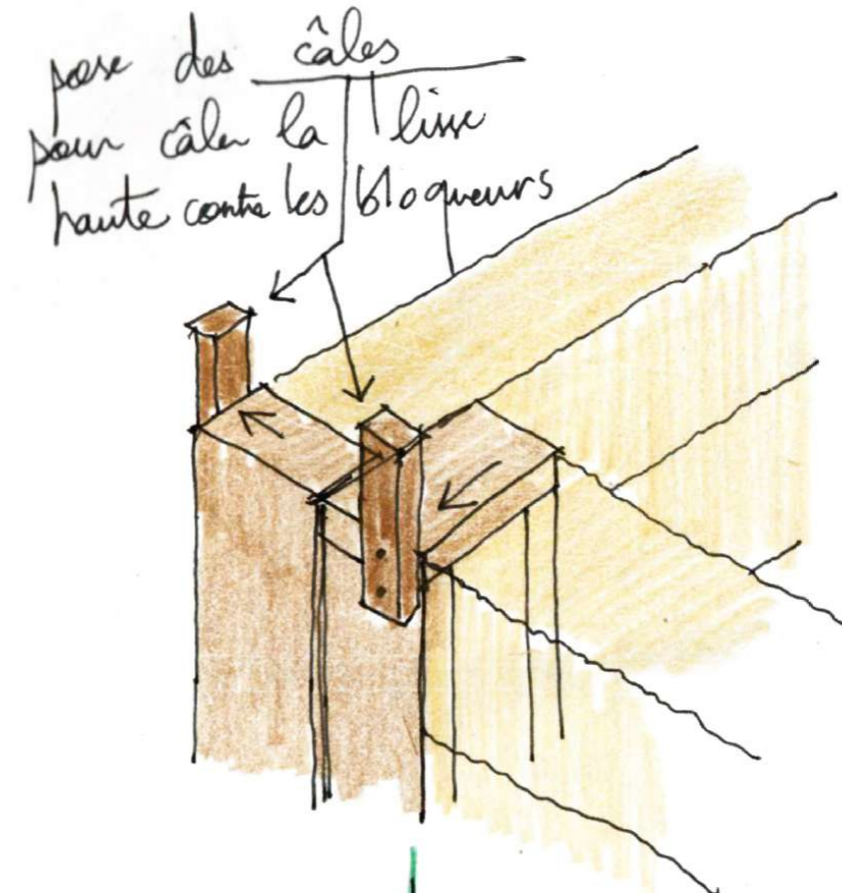 pose des câles
pour câler la lisse
haute contre les bloqueurs